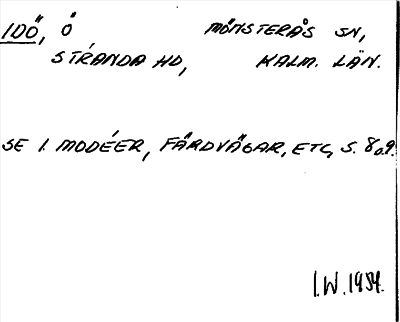 IDÖ, Ö MÖNSTERÅS SN,
STRANDA HD, KALM. LÄN.
SE I. MODÉER, FÄRDVÄGAR, ETC, S. 8 o. 9.
I.W. 1954.